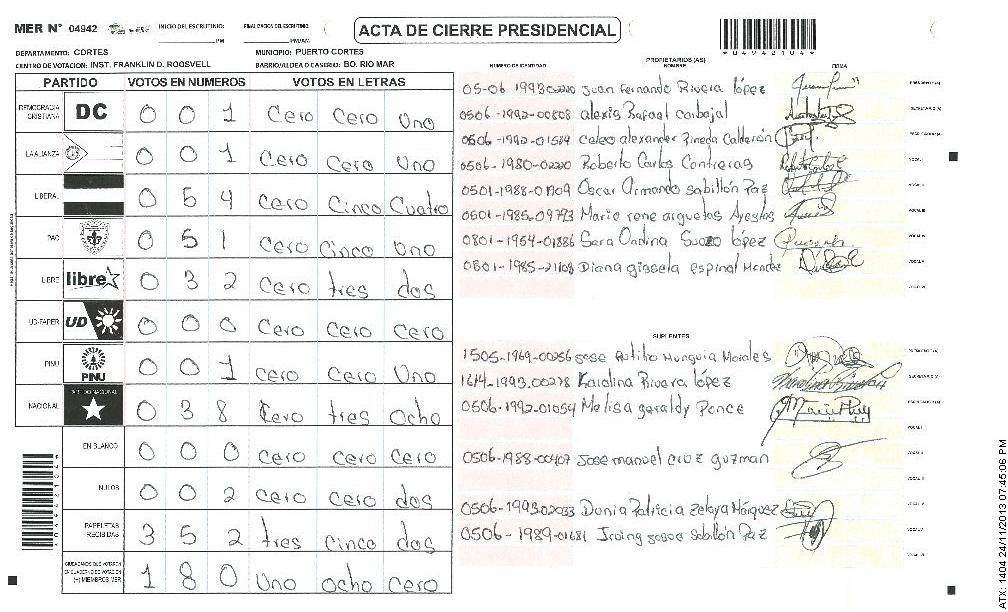 MER Nº 04942 INICIO DEL ESCRUTINIO: PM FINALIZACION DEL ESCRUTINIO: PM/AM
ACTA DE CIERRE PRESIDENCIAL
*04942104*
DEPARTAMENTO: CORTES MUNICIPIO: PUERTO CORTES
CENTRO DE VOTACION: INST. FRANKLIN D. ROOSVELL BARRIO/ALDEA O CASERIO: BO. RIO MAR
PARTIDO VOTOS EN NUMEROS VOTOS EN LETRAS
DEMOCRACIA CRISTIANA DC 0 0 1 Cero Cero Uno
LA ALIANZA 0 0 1 Cero Cero Uno
LIBERAL 0 5 4 Cero Cinco Cuatro
PAC 0 5 1 Cero Cinco Uno
LIBRE libre 0 3 2 Cero tres dos
UD-FAPER UD 0 0 0 Cero Cero Cero
PINU PINU 0 0 1 Cero Cero Uno
NACIONAL PARTIDO NACIONAL 0 3 8 Cero tres Ocho
EN BLANCO 0 0 0 Cero Cero Cero
NULOS 0 0 2 Cero Cero dos
PAPELETAS RECIBIDAS 3 5 2 tres Cinco dos
CIUDADANOS QUE VOTARON EN CUADERNO DE VOTACION (+) MIEMBROS MER 1 8 0 Uno Ocho Cero
PROPIETARIOS (AS)
NUMERO DE IDENTIDAD NOMBRE FIRMA
05-06 1993 Juan Fernando Rivera lópez PRESIDENTE (A)
0506-1992-00808 alexis Rafael carbajal SECRETARIO (A)
0506-1992-01584 caleo alexander Pineda Calderón ESCRUTADOR (A)
0506-1980-02220 Roberto Carlos Contreras VOCAL I
0501-1988-01909 Oscar Armando sabillón Paz VOCAL II
0501-1985-09793 Mario rene arguetas Ayestas VOCAL III
0801-1954-01886 Sara Ondina Suazo lópez VOCAL IV
0801-1985-21108 Diana gissela espinal Mendez VOCAL V
VOCAL VI
SUPLENTES
1505-1969-00256 Jose Murguia Morales PRESIDENTE (A)
1614-1993-00278 Karolina Rivera lópez SECRETARIO (A)
0506-1992-01054 Melisa geraldy Ponce ESCRUTADOR (A)
VOCAL I
0506-1988-00407 Jose manuel cruz guzman VOCAL II
VOCAL III
0506-1993-02033 Dunia Patricia Zelaya Márquez VOCAL IV
0506-1989-01681 Irving Josue Sabillón Paz VOCAL V
VOCAL VI
ATX: 1404 24/11/2013 07:45:06 PM